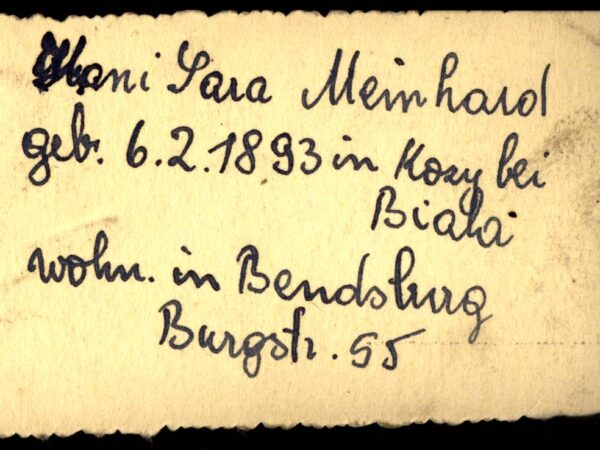 Hani Sara Meinhard
geb. 6.2.1893 in Kozy bei
Biala
wohn. in Bendsburg
Burgstr. 55